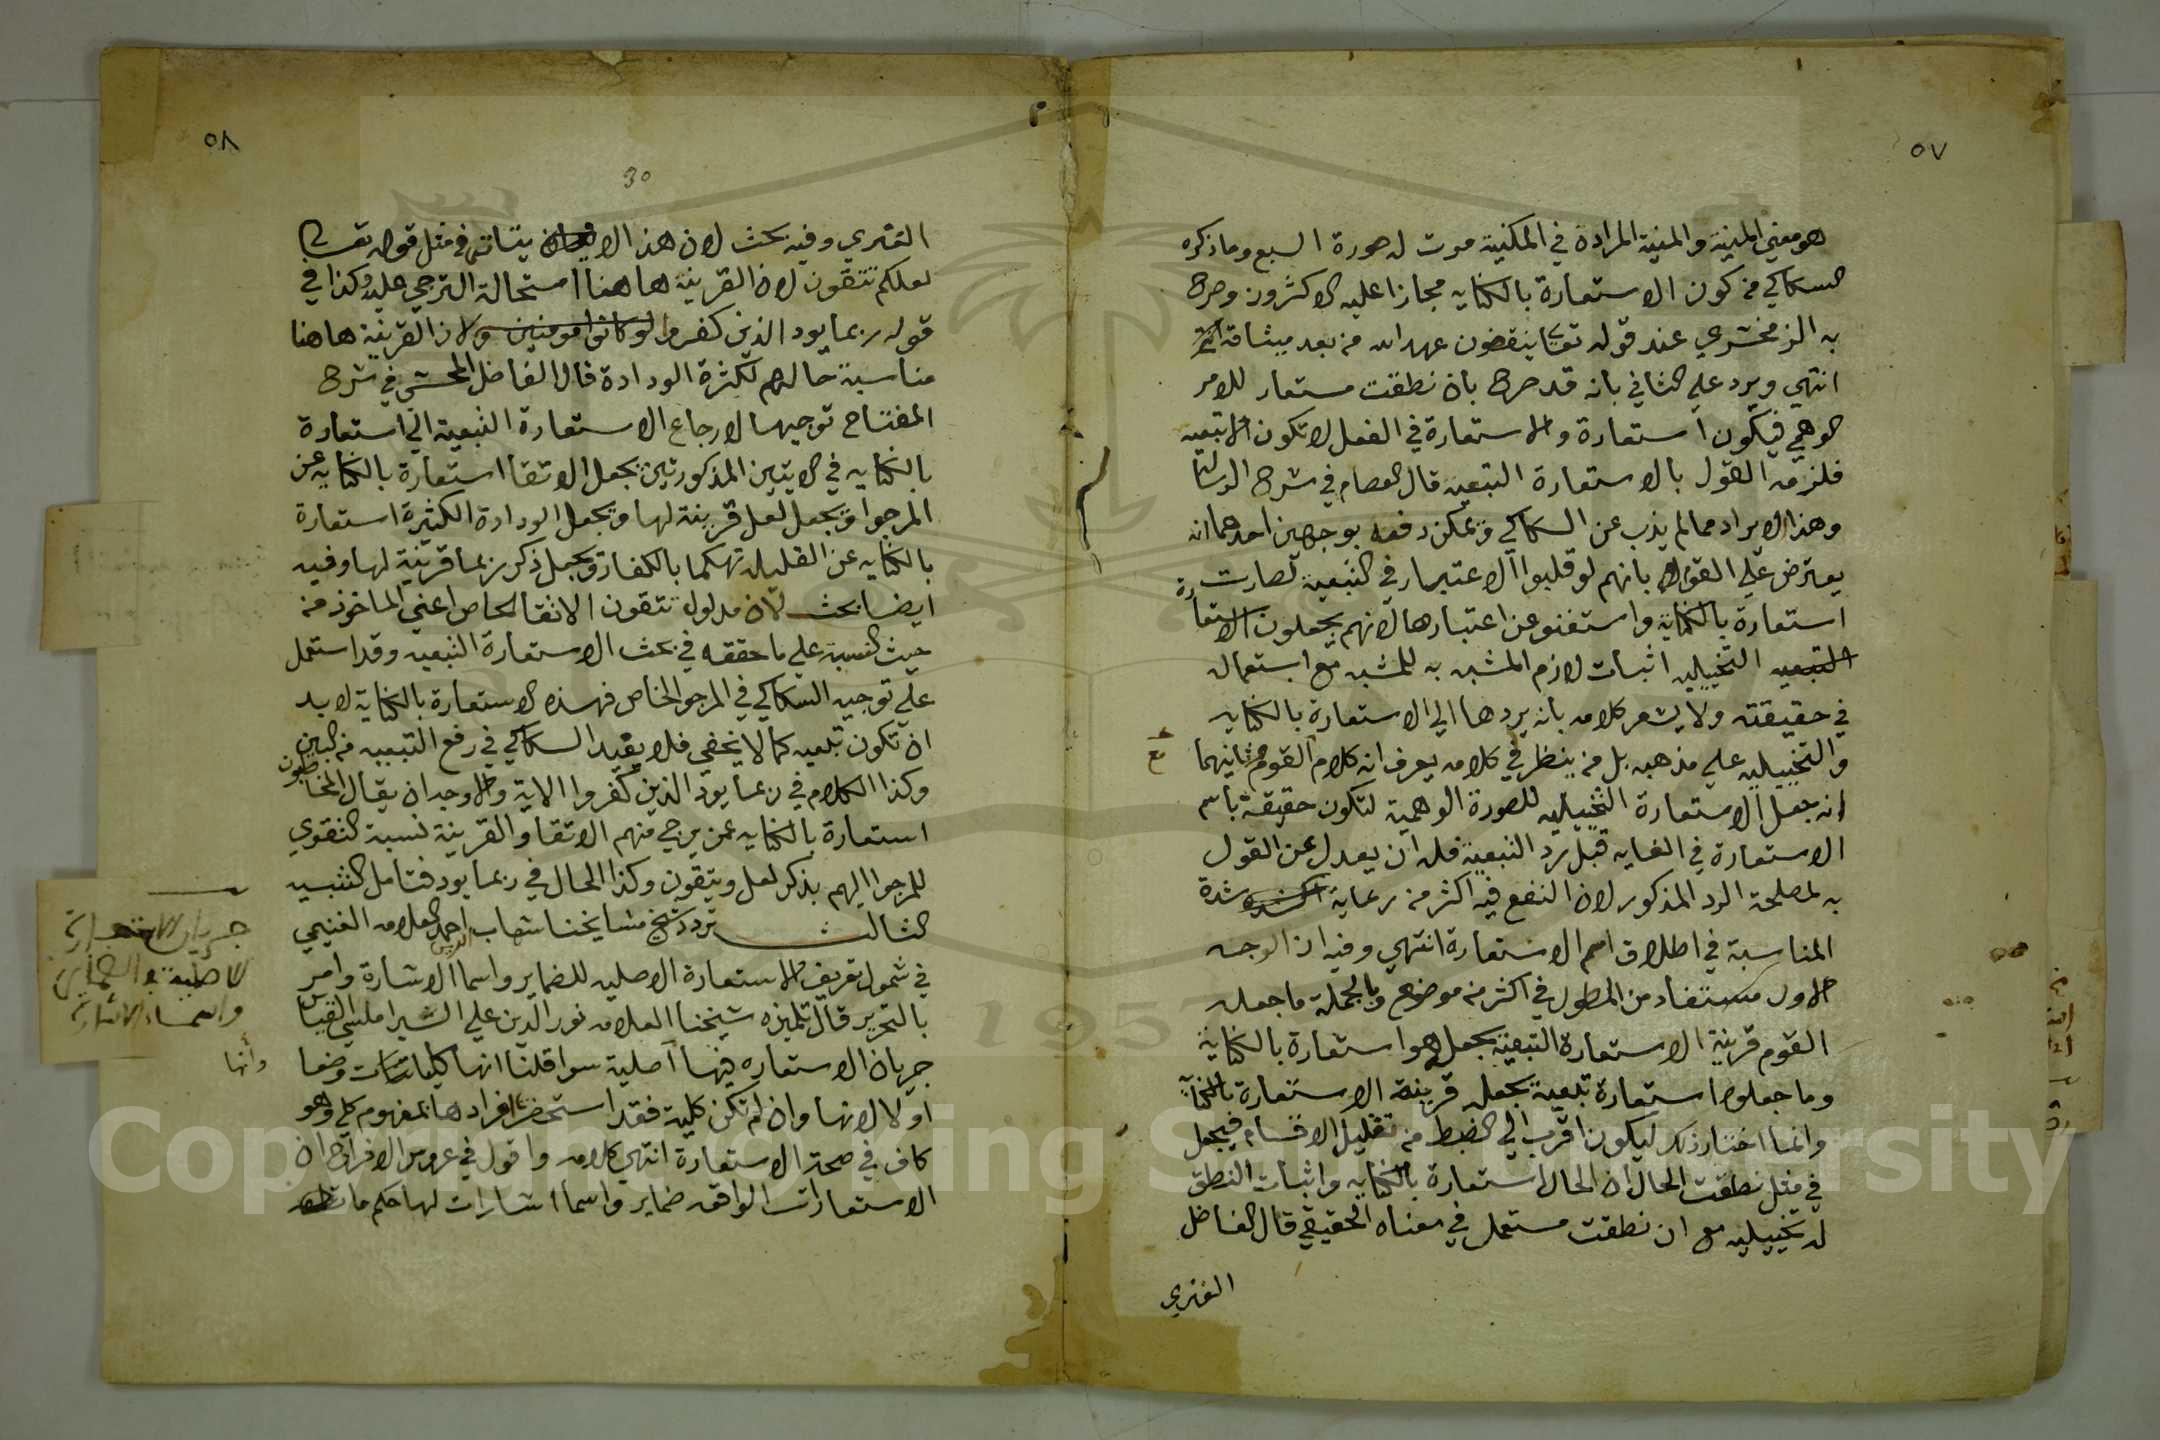 ٥٧
هو معني المنية والمنية المرادة في المكنية موت له صورة السبع وما ذكره
السكاكي من كون الاستعارة بالكنايه مجازا عليه الاكثرون وصرح
به الزمخشري عند قوله تعالي ينقضون عهد الله من بعد ميثاقه
انتهي ويرد علي الثاني بانه قد صرح بان نطقت مستعار للامر
الوهمي فيكون استعارة والاستعارة في الفعل لا تكون الا تبعيه
فلزمه القول بالاستعارة التبعيه قال العصام في شرح الرسالة
وهذا الايراد مما لم يذب عن السكاكي ويمكن دفعه بوجهين احدهما انه
يعترض علي القوم بانهم لو قلبوا الاعتبار في التبعية لصارت
استعارة بالكناية واستغنو عن اعتبارها لانهم يجعلون الاستعارة
التبعيه التخييليه اثبات لازم المشبه به للمشبه مع استعماله
في حقيقته ولا يشعر كلامه بانه يردها الي الاستعارة بالكنايه
والتخييليه علي مذهبه بل من ينظر في كلامه يعرف انه كلام القوم ثانيهما
انه جعل الاستعارة التخييليه للصورة الوهمية لتكون حقيقة باسم
الاستعارة في الغايه قبل رد التبعية فله ان يعدل عن القول
به لمصلحة الرد المذكور لان النفع فيه اكثر من رعاية شدة
المناسبة في اطلاق اسم الاستعارة انتهي وفيه ان الوجه
الاول مستفاد من المطول في اكثر من موضع وبالجملة ما جعله
القوم قرينة الاستعارة التبعية يجعله هو استعارة بالكناية
وما جعلوه استعارة تبعية يجعله قرينة الاستعارة بالكناية
وانما اختار ذلك ليكون اقرب الي الضبط من تقليل الاقسام فيجعل
في مثل نطقت الحال ان الحال استعارة بالكنايه واثبات النطق
له تخييليه مع ان نطقت مستعمل في معناه الحقيقي قال الفاضل
الفنري
٥٨
30
الفنري وفيه بحث لان هذا لا يتاتي في مثل قوله تعالي
لعلكم تتقون لان القرينة هاهنا استحالة الترجي عليه وكذا في
قوله ربما يود الذين كفروا لو كانوا مومنين ولان القرينة هاهنا
مناسبة حالهم لكثرة الودادة قال الفاضل المحشي في شرح
المفتاح توجيها لارجاع الاستعارة التبعية الي استعارة
بالكنايه في الايتين المذكورتين بجعل الاتقا استعارة بالكنايه عن
المرجوا ويجعل لعل قرينة لها ويجعل الودادة الكثيرة استعارة
بالكنايه عن القليله تهكما بالكفار ويجعل ذكر ربما قرينة لها وفيه
ايضا بحث لان مدلول تتقون الاتقا الخاص اعني الماخوذ من
حيث النسبة علي ما حققه في بحث الاستعارة التبعيه وقد استعمل
علي توجيه السكاكي في المرجو الخاص فهذه الاستعارة بالكناية لا بد
ان تكون تبعيه كما لا يخفي فلا يفيد السكاكي في رفع التبعيه من البين
وكذا الكلام في ربما يود الذين كفروا الاية والاوجه ان يقال المخاطبون
استعارة بالكنايه عمن يرجي منهم الاتقا والقرينة نسبة التقوي
للمرجوا اليهم بذكر لعل ويتقون وكذا الحال في ربما يود فتامل التنبيه
الثالث تردد شيخ مشايخنا شهاب الدين احمد العلامه الغنيمي
في شمول تعريف الاستعارة الاصليه للضماير واسما الاشارة وامر
بالتحرير قال تلميذه شيخنا العلامه نور الدين علي الشبراملسي القياس
جريان الاستعاره فيها اصلية سوا قلنا انها كليات وضعا
اولا لانها وان لم تكن كلية فقد استحضر افرادها بمفهوم كلي وهو
كاف في صحة الاستعارة انتهي كلامه واقول في عروس الافراح ان
الاستعارات الواقعه ضماير واسما اشارات لها حكم ما
جريان الاستعارة
الاصلية في الضماير
واسماء الاشارة
وأنها
Copyright © King Saud University
1957